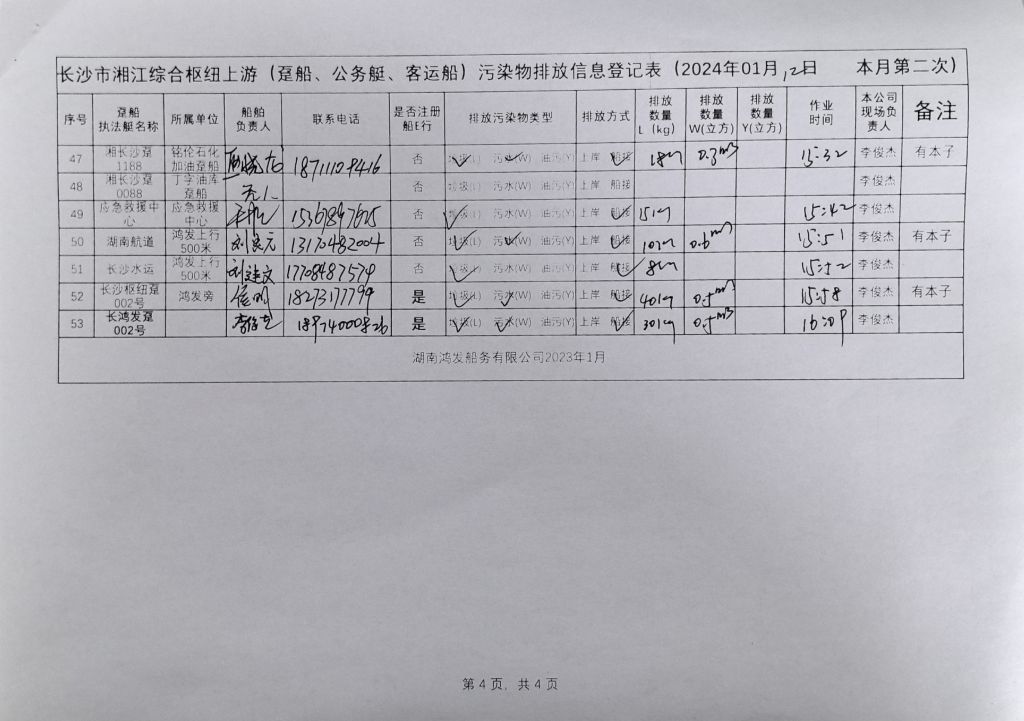 长沙市湘江综合枢纽上游（趸船、公务艇、客运船）污染物排放信息登记表（2024年01月12日 本月第二次）
序号 趸船执法艇名称 所属单位 船舶负责人 联系电话 是否注册船E行 排放污染物类型 排放方式 排放数量L（kg） 排放数量W(立方) 排放数量Y(立方) 作业时间 本公司现场负责人 备注
47 湘长沙趸1188 铭伦石化加油趸船 否 垃圾(L) 污水(W) 油污(Y) 上岸 船接 18kg 0.3m3 15:32 李俊杰 有本子
48 湘长沙趸0088 丁字油库趸船 无人 否 垃圾(L) 污水(W) 油污(Y) 上岸 船接 李俊杰
49 应急救援中心 应急救援中心 否 垃圾(L) 污水(W) 油污(Y) 上岸 船接 15kg 15:42 李俊杰
50 湖南航道 鸿发上行500米 刘良元 13170482004 否 垃圾(L) 污水(W) 油污(Y) 上岸 船接 10kg 0.6m3 15:51 李俊杰 有本子
51 长沙水运 鸿发上行500米 刘建文 17708487574 否 垃圾(L) 污水(W) 油污(Y) 上岸 船接 8kg 15:52 李俊杰
52 长沙枢纽趸002号 鸿发旁 18273177799 是 垃圾(L) 污水(W) 油污(Y) 上岸 船接 40kg 0.5m3 15:58 李俊杰 有本子
53 长鸿发趸002号 18974000826 是 垃圾(L) 污水(W) 油污(Y) 上岸 船接 30kg 0.5m3 16:09 李俊杰
湖南鸿发船务有限公司2023年1月
第 4 页，共 4 页